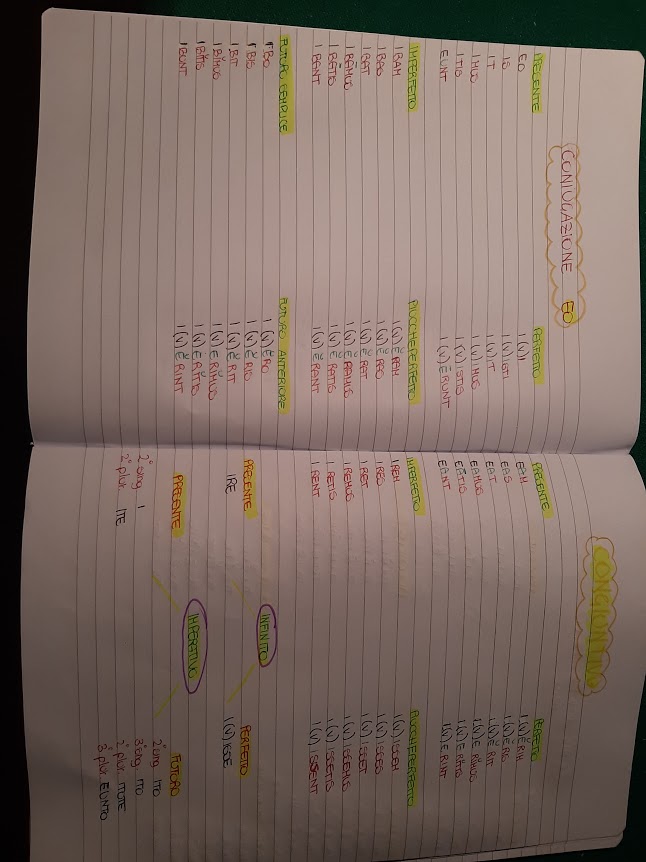 CONIUGAZIONE EO
PRESENTE
EO
IS
IT
IMUS
ITIS
EUNT
PERFETTO
I (V) I
I (V) ISTI
I (V) IT
I (V) IMUS
I (V) ISTIS
I (V) ĒRUNT
IMPERFETTO
I BAM
I BAS
I BAT
I BĀMUS
I BĀTIS
I BANT
PIUCCHEPERFETTO
I (V) ĔRAM
I (V) ĔRAS
I (V) ĔRAT
I (V) ĔRAMUS
I (V) ĔRATIS
I (V) ĔRANT
FUTURO SEMPLICE
I BO
I BIS
I BIT
I BĬMUS
I BĬTIS
I BUNT
FUTURO ANTERIORE
I (V) ĔRO
I (V) ĔRIS
I (V) ĔRIT
I (V) ĔRĬMUS
I (V) ĔRĬTIS
I (V) ĔRINT
CONGIUNTIVO
PRESENTE
EAM
EAS
EAT
EAMUS
EĀTIS
EANT
PERFETTO
I (V) ĔRIM
I (V) ĔRIS
I (V) ĔRIT
I (V) ERĬMUS
I (V) ERĬTIS
I (V) ERINT
IMPERFETTO
I REM
I RES
I RET
I REMUS
I RETIS
I RENT
PIUCCHEPERFETTO
I (V) ISSEM
I (V) ISSES
I (V) ISSET
I (V) ISSEMUS
I (V) ISSETIS
I (V) ISSENT
INFINITO
PRESENTE
IRE
PERFETTO
I (V) ISSE
IMPERATIVO
PRESENTE
2° sing I
2° plur. ITE
FUTURO
2° sing ITO
3° sing. ITO
2° plur. ITOTE
3° plur. EUNTO